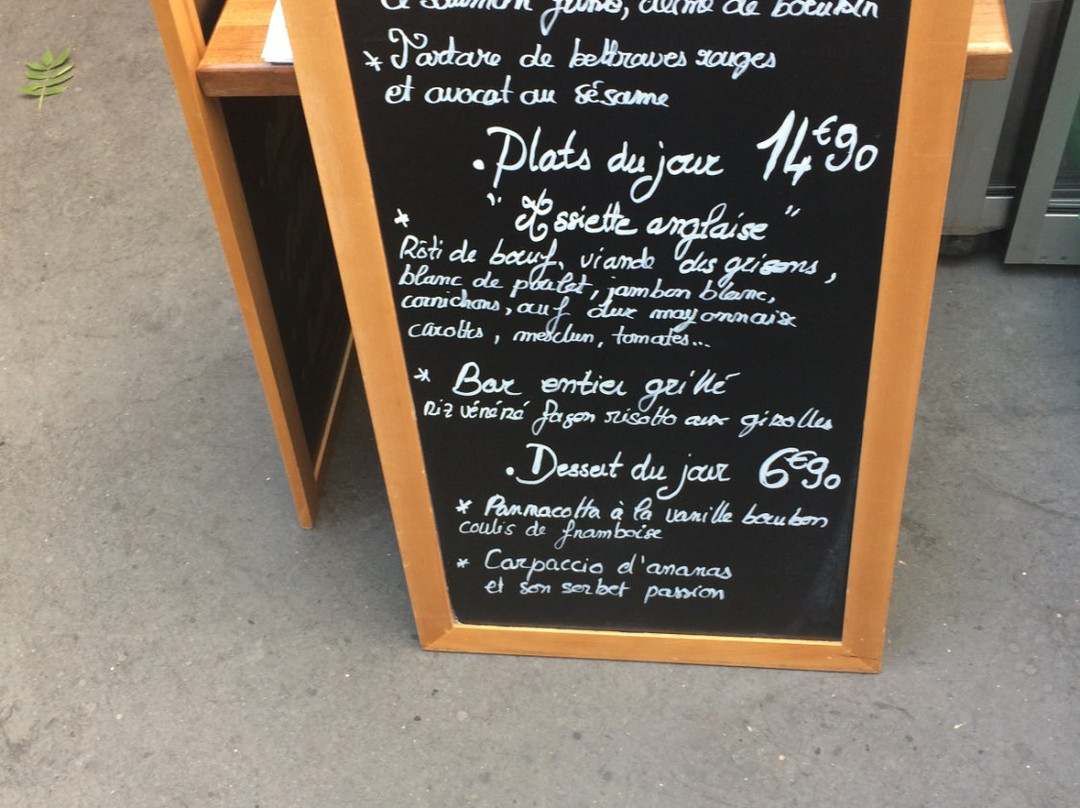 saumon fumé, crème de boursin
* Tartare de bettraves rouges
et avocat au sésame
. Plats du jour 14€90
* "Assiette anglaise"
Rôti de bœuf, viande des grisons,
blanc de poulet, jambon blanc,
cornichons, œuf dur mayonnaise
carottes, mesclun, tomates...
* Bar entier grillé
riz vénéré façon risotto aux girolles
. Dessert du jour 6€90
* Pannacotta à la vanille bourbon
coulis de framboise
* Carpaccio d'ananas
et son sorbet passion